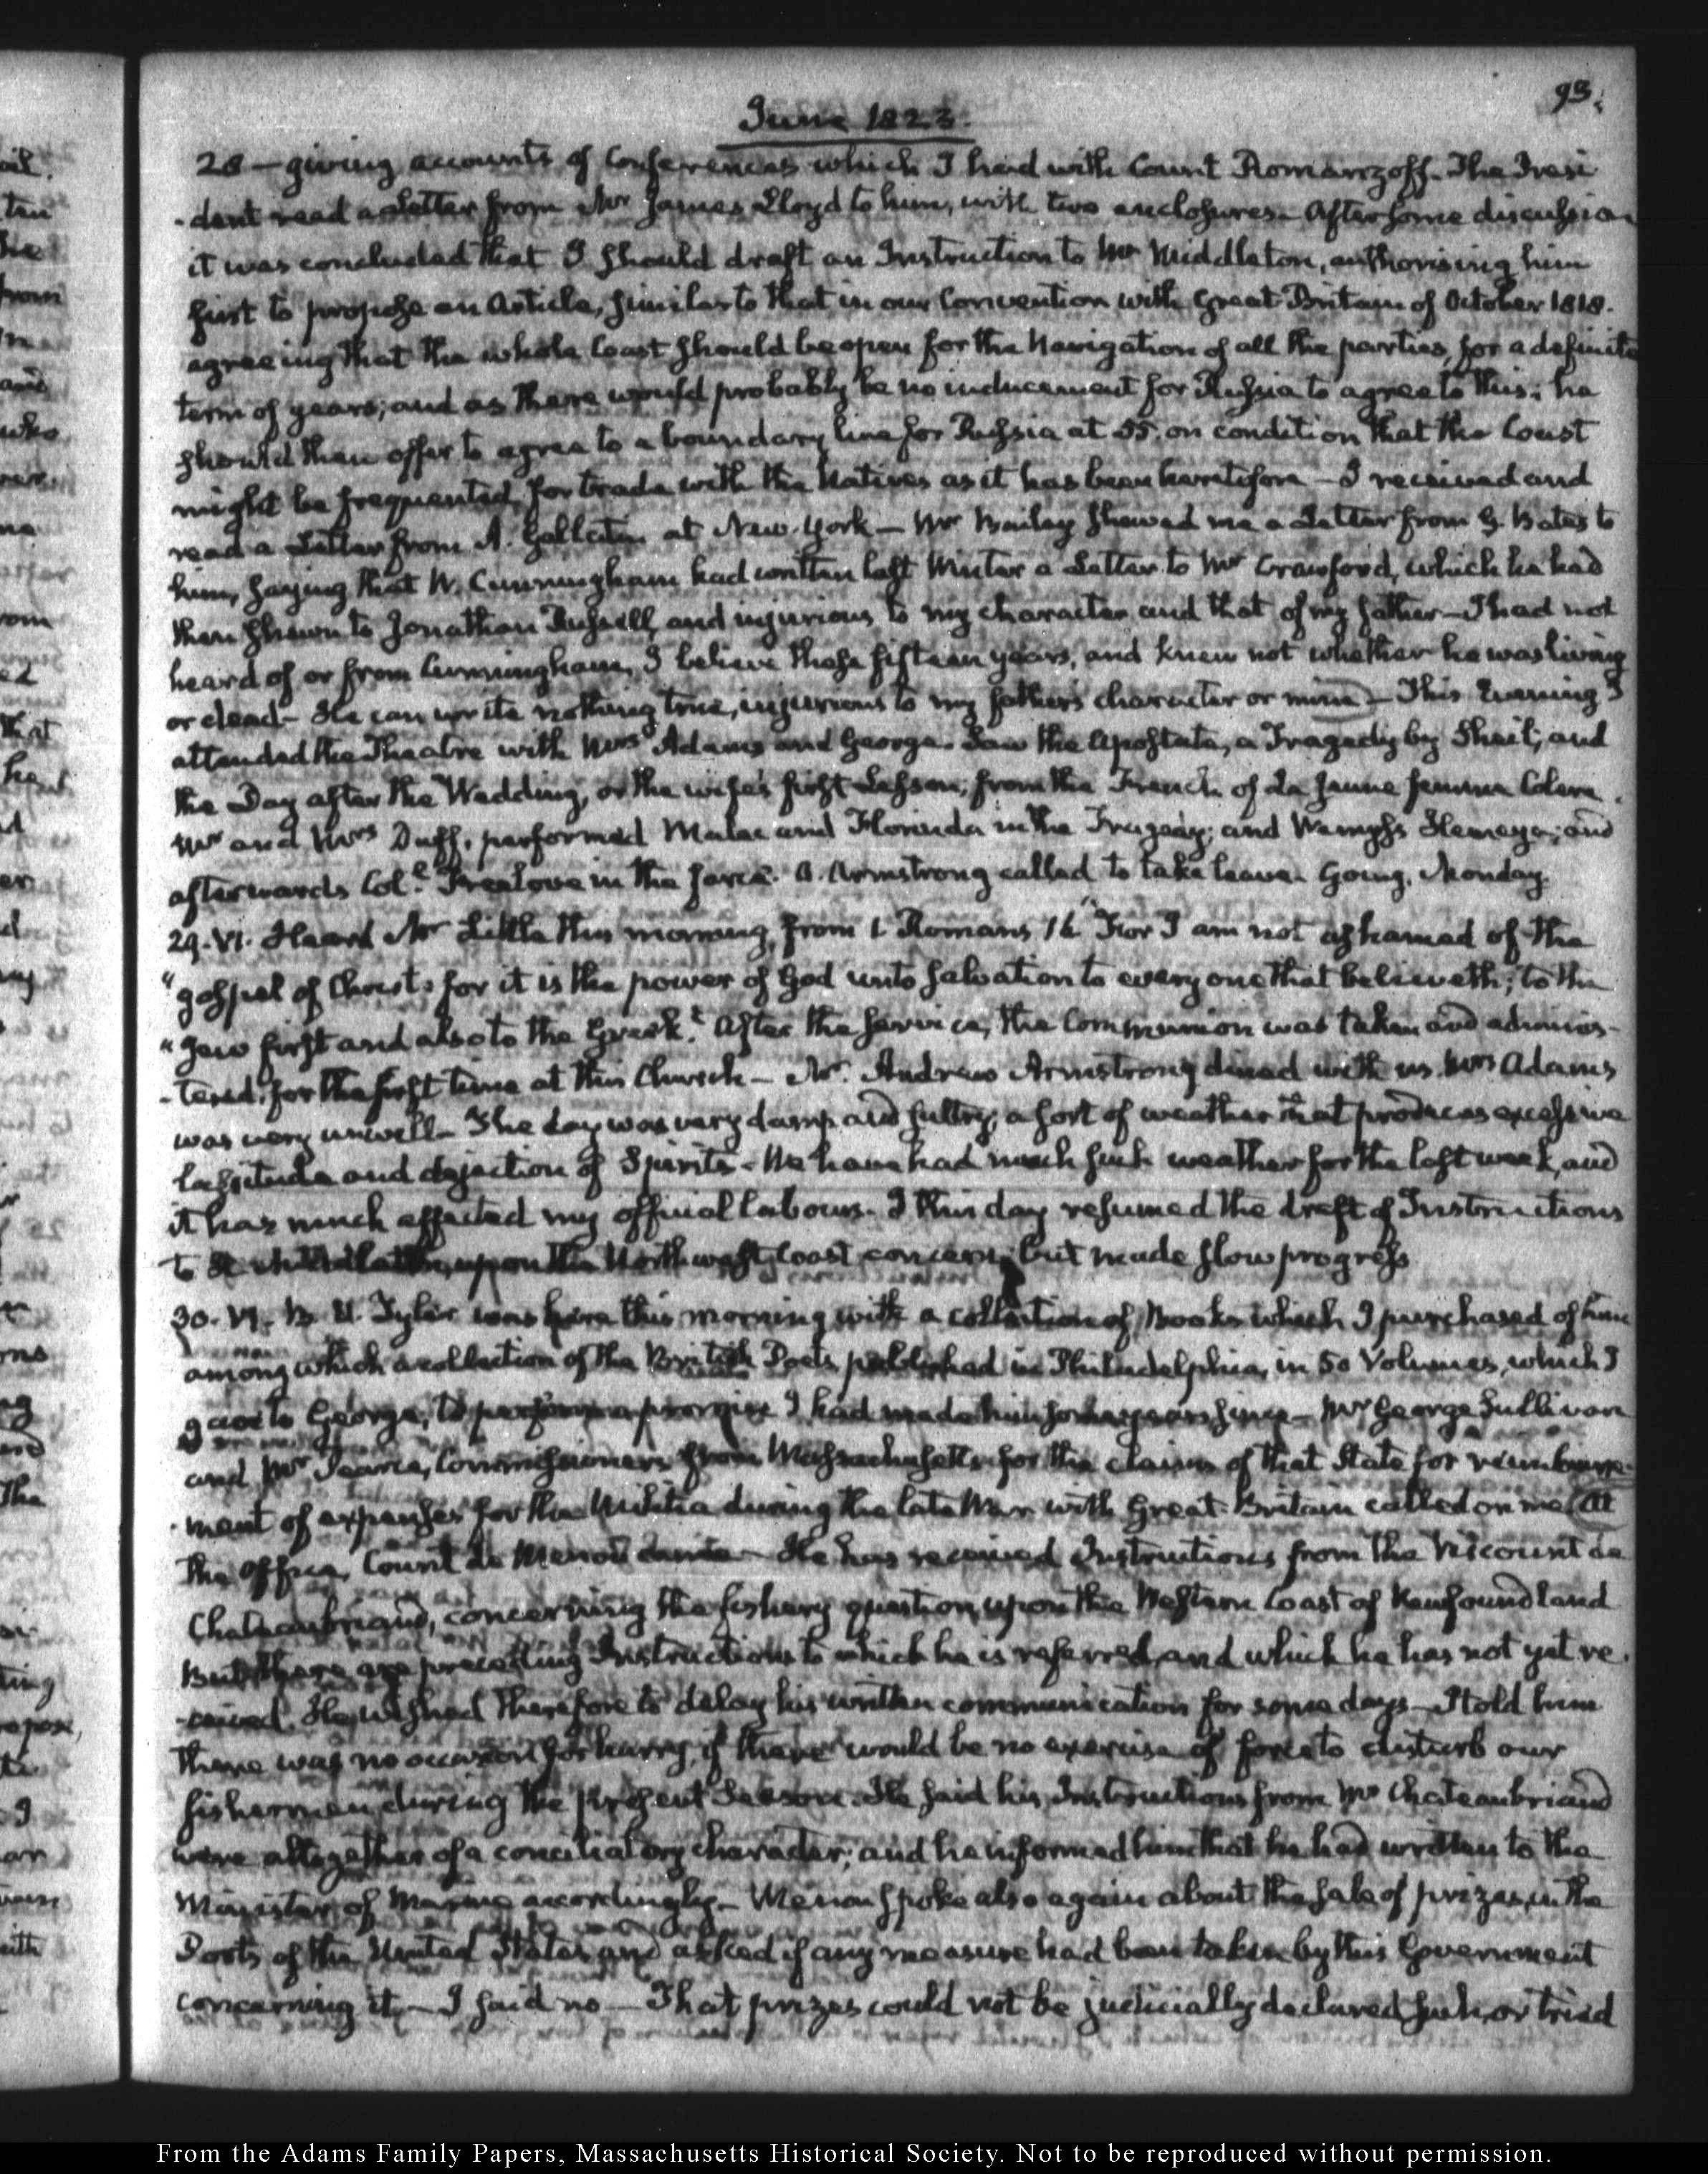 93.
June 1823.
28 — giving accounts of Conferences which I had with Count Romanzoff. The Presi
-dent read a Letter from Mr James Lloyd to him, with two enclosures. After some discussion
it was concluded that I should draft an Instruction to Mr Middleton, authorising him
first to propose an Article, similar to that in our Convention with Great-Britain of October 1818.
agreeing that the whole Coast should be open for the Navigation of all the parties, for a definite
term of years; and as there would probably be no inducement for Russia to agree to this; he
should then offer to agree to a boundary line for Russia at 55. on condition that the Coast
might be frequented for trade with the Natives as it has been heretofore — I received and
read a Letter from A. Gallatin at New-York — Mr Bailey shewed me a Letter from G. Bates to
him, saying that W. Cunningham had written last Winter a Letter to Mr Crawford, which he had
then shewn to Jonathan Russell, and injurious to my character and that of my father — I had not
heard of or from Cunningham, I believe these fifteen years, and knew not whether he was living
or dead — He can write nothing true, injurious to my father's character or mine — This Evening I
attended the Theatre with Mrs Adams and George. Saw the Apostate, a Tragedy by Sheil; and
the Day after the Wedding, or the wife's first Lesson; from the French of La Jeune femme Colere.
Mr and Mrs Duff, performed Malec and Florinda in the Tragedy; and Wemyss Hemeya; and
afterwards Coll. Freelove in the farce. A. Armstrong called to take leave. Going. Monday.
29. VI. Heard Mr Little this morning, from 1 Romans 16 "For I am not ashamed of the
"gospel of Christ: for it is the power of God unto salvation to every one that believeth; to the
"Jew first and also to the Greek." After the service, the Communion was taken and adminis-
-tered, for the first time at this Church — Mr. Andrew Armstrong dined with us. Mrs Adams
was very unwell — The day was very damp and sultry; a sort of weather that produces excessive
lassitude and dejection of Spirits — We have had much such weather for the last week, and
it has much affected my official labours. I this day resumed the draft of Instructions
to H. Middleton, upon the Northwest Coast concern; but made slow progress
30. VI. B. U. Tyler was here this morning with a collection of Books which I purchased of him
among which a collection of the British Poets published in Philadelphia, in 50 Volumes, which I
gave to George, to perform a promise I had made him some years since — Mr George Sullivan
and Mr Pearce, Commissioners from Massachusetts for the claim of that State for reimburse-
-ment of expenses for the Militia during the late War with Great-Britain called on me. At
the Office, Count de Menou came — He has received Instructions from the Viscount de
Chateaubriand, concerning the fishery question, upon the Western Coast of Newfoundland
But there are preceding Instructions to which he is referred, and which he has not yet re
-ceived. He wished therefore to delay his written communication for some days — I told him
there was no occasion for hurry, if there would be no exercise of force to disturb our
fishermen during the present Season. He said his Instructions from Mr Chateaubriand
were altogether of a conciliatory character; and he informed him that he had written to the
Minister of Marine accordingly — Menou spoke also again about the sale of prizes, in the
Ports of the United States and asked if any measure had been taken by this Government
concerning it — I said no — That prizes could not be judicially declared such, or tried
From the Adams Family Papers, Massachusetts Historical Society. Not to be reproduced without permission.